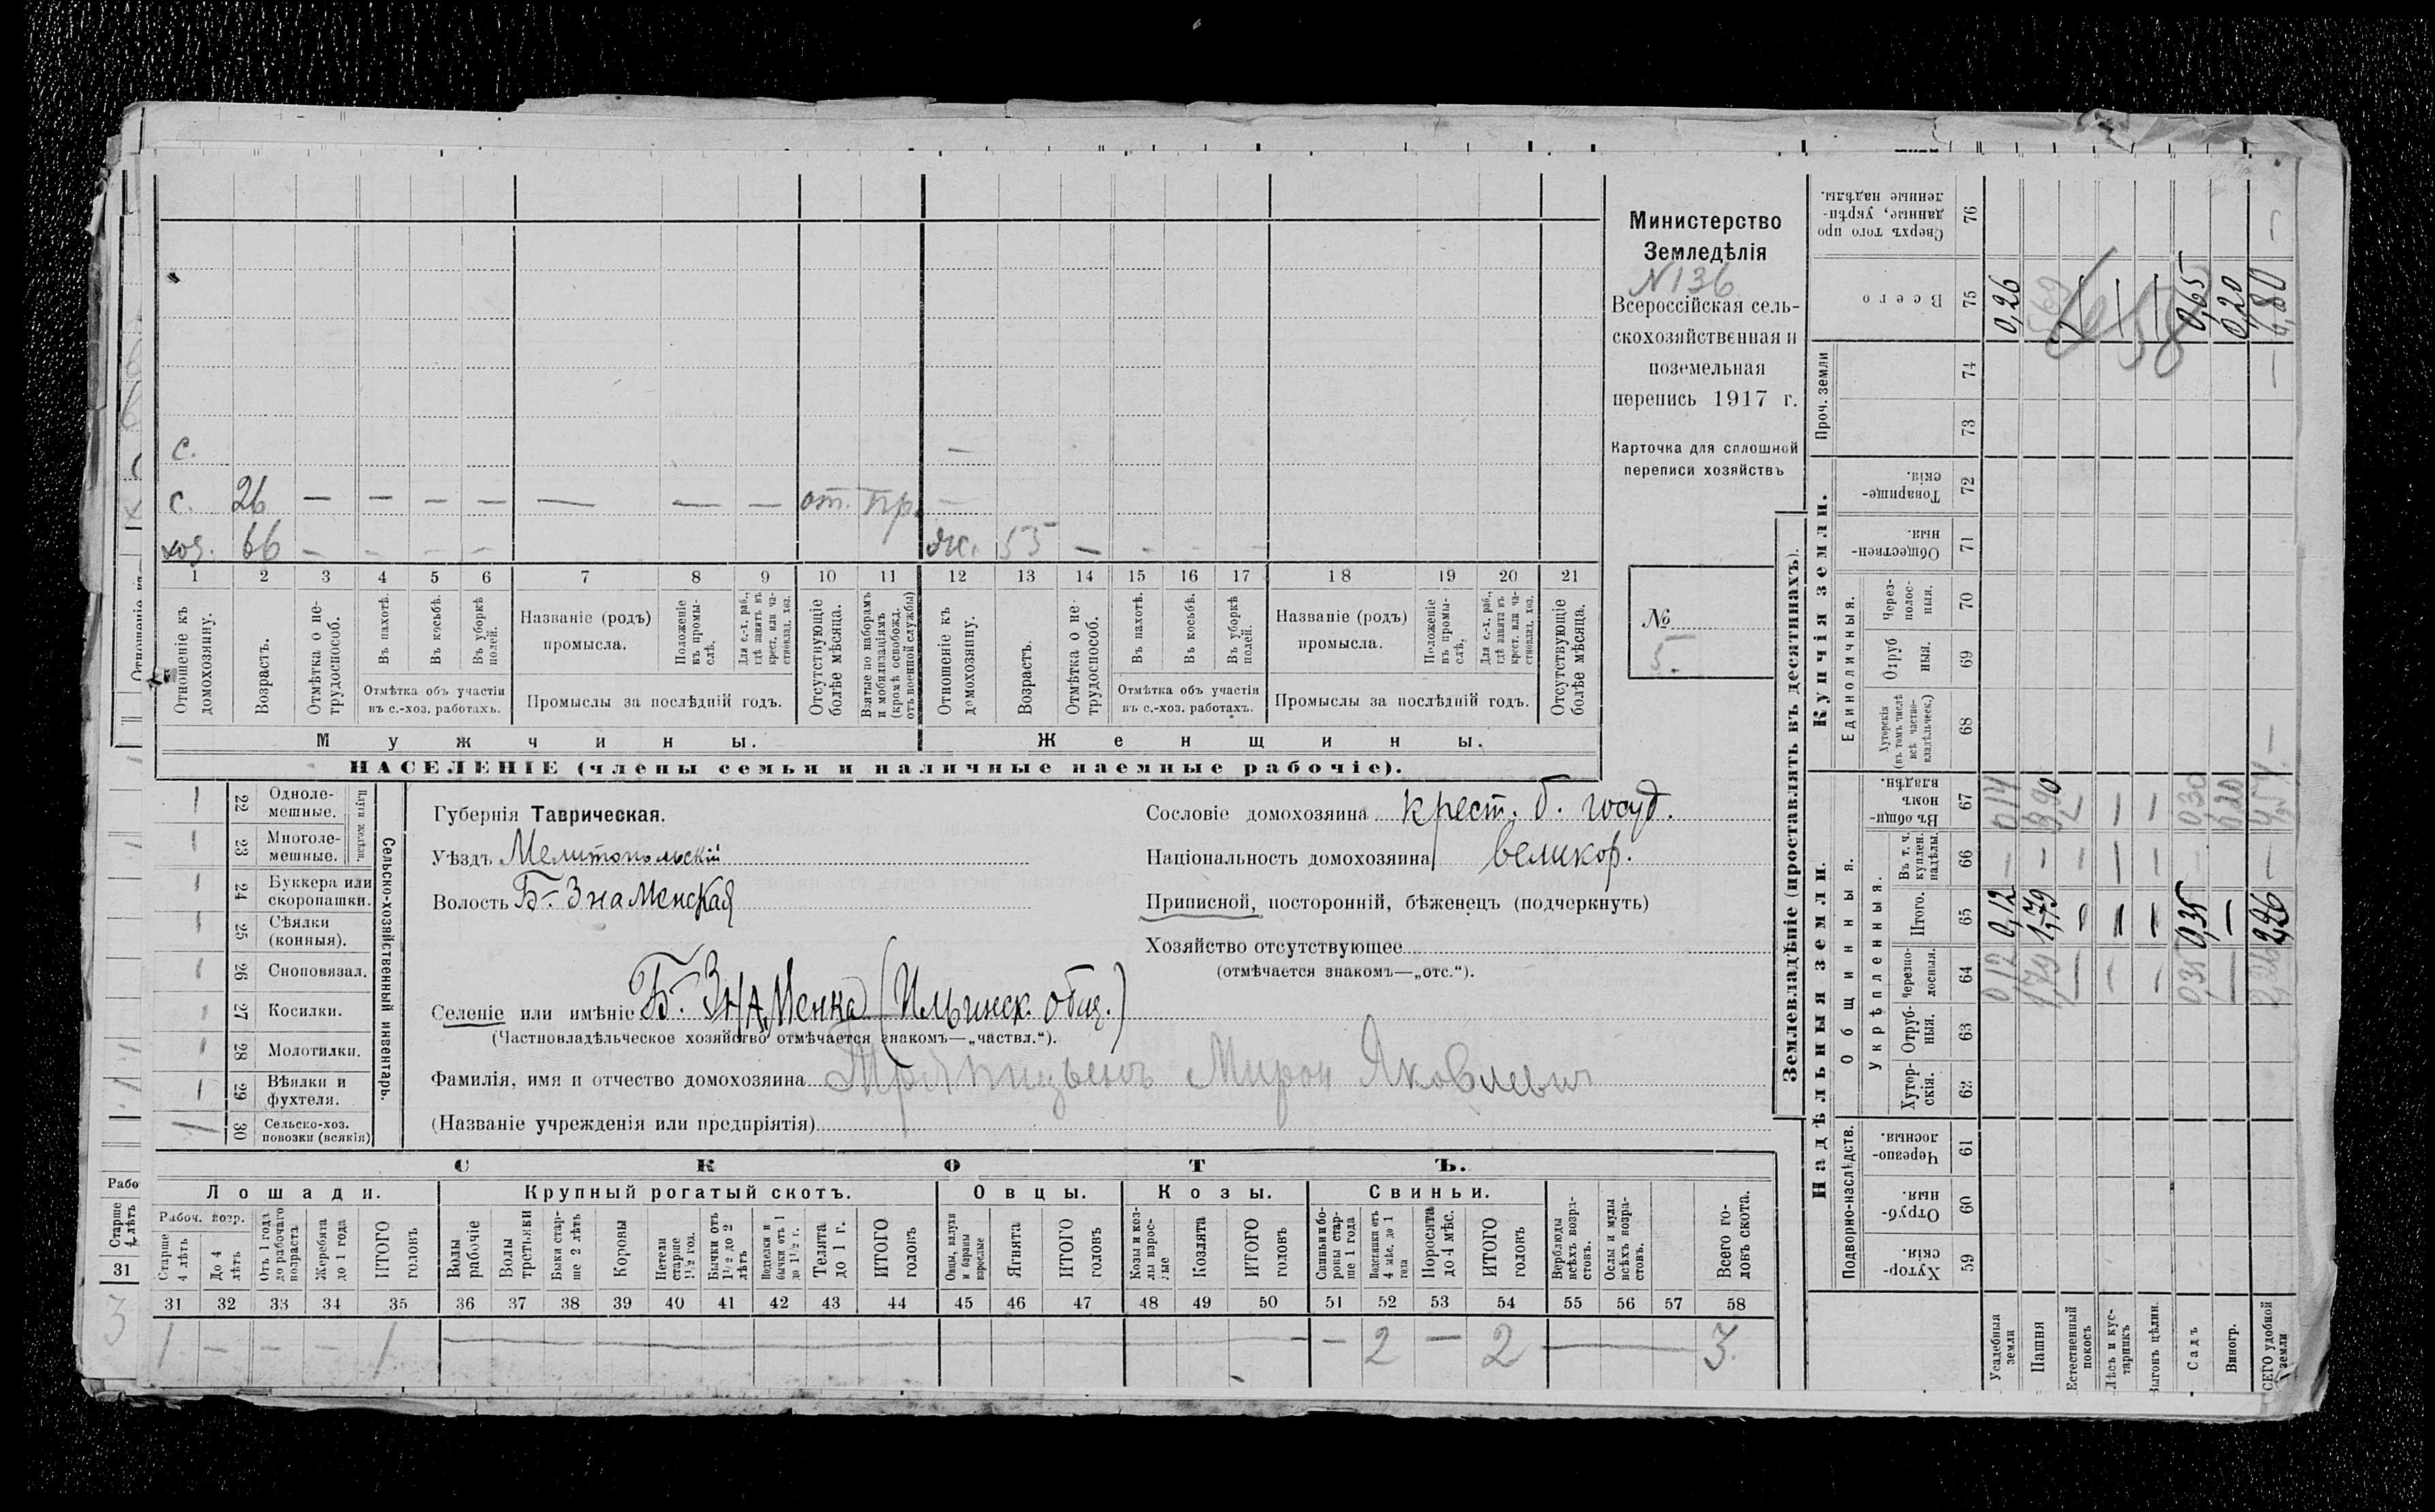 Министерство
Земледѣлія
N136
Всероссійская сель-
скохозяйственная и
поземельная
перепись 1917 г.
Карточка для сплошной
переписи хозяйствъ
№
5.
с. —
с. 26 — — — — — — — от. пр. —
хоз. 66 — — — — ж. 53 — - - -
1 2 3 4 5 6 7 8 9 10 11 12 13 14 15 16 17 18 19 20 21
Отношеніе къ домохозяину.
Возрастъ.
Отмѣтка о не-трудоспособ.
Въ пахотѣ.
Въ косьбѣ.
Въ уборкѣ полей.
Отмѣтка объ участіи
въ с.-хоз. работахъ.
Названіе (родъ)
промысла.
Положеніе въ промы-слѣ.
Для с.-х. раб., гдѣ занятъ въ крест. или ча-стновлад. хоз.
Промыслы за послѣдній годъ.
Отсутствующіе болѣе мѣсяца.
Взятые по наборамъ и мобилизаціямъ (кромѣ освобожд. отъ военной службы)
Отношеніе къ домохозяину.
Возрастъ.
Отмѣтка о не-трудоспособ.
Въ пахотѣ.
Въ косьбѣ.
Въ уборкѣ полей.
Отмѣтка объ участіи
въ с.-хоз. работахъ.
Названіе (родъ)
промысла.
Положеніе въ промы-слѣ,
Для с.-х. раб., гдѣ занята въ крест. или ча-стновлад. хоз.
Промыслы за послѣдній годъ.
Отсутствующіе болѣе мѣсяца.
Мужчины. Женщины.
НАСЕЛЕНІЕ (члены семьи и наличные наемные рабочіе).
Сельско-хозяйственный инвентарь.
Плуги желѣзн.
1 22 Одноле-мешные.
1 23 Многоле-мешные.
1 24 Буккера или скоропашки.
1 25 Сѣялки (конныя).
1 26 Сноповязал.
1 27 Косилки.
1 28 Молотилки.
1 29 Вѣялки и фухтеля.
1 30 Сельско-хоз. повозки (всякія)
Губернія Таврическая.
Уѣздъ Мелитопольскій
Волость Б-Знаменская
Селеніе или имѣніе Б. Знаменка (Ильинск. общ.)
(Частновладѣльческое хозяйство отмѣчается знакомъ—„частвл.“).
Фамилія, имя и отчество домохозяина Мирон Яковлевич
(Названіе учрежденія или предпріятія)
Сословіе домохозяина крест. б. госуд.
Національность домохозяина великор.
Приписной, посторонній, бѣженецъ (подчеркнуть)
Хозяйство отсутствующее
(отмѣчается знакомъ—„отс.“).
СКОТЪ.
Лошади. Крупный рогатый скотъ. Овцы. Козы. Свиньи.
Рабоч. возр.
Старше 4 лѣтъ
До 4 лѣтъ
Отъ 1 года до рабочаго возраста
Жеребята до 1 года
ИТОГО головъ
Волы рабочіе
Волы третьяки
Быки стар-ше 2 лѣтъ
Коровы
Нетели старше 1½ год.
Бычки отъ 1½ до 2 лѣтъ
Подтелки и бычки отъ 1 до 1½ г.
Телята до 1 г.
ИТОГО головъ
Овцы, валухи и бараны взрослые
Ягнята
ИТОГО головъ
Козы и коз-лы взрос-лые
Козлята
ИТОГО головъ
Свиньи и бо-ровы стар-ше 1 года
Подсвинки отъ 4 мѣс. до 1 года
Поросята до 4 мѣс.
ИТОГО головъ
Верблюды всѣхъ возра-стовъ.
Ослы и мулы всѣхъ возра-стовъ.
Всего го-ловъ скота.
31 32 33 34 35 36 37 38 39 40 41 42 43 44 45 46 47 48 49 50 51 52 53 54 55 56 57 58
1 — — — 1 — — 2 — 2 — 3.
Рабо
Старше 4 лѣтъ
31
3
Землевладѣніе (проставлять въ десятинахъ).
Надѣльныя земли. Купчія земли. Проч. земли
Подворно-наслѣдств. Общинныя. Единоличныя.
Укрѣпленныя.
Хутор-скія. 59
Отруб-ныя. 60
Черезпо-лосныя. 61
Хутор-скія. 62
Отруб-ныя. 63
Черезпо-лосныя. 64
Итого. 65
Въ т. ч. куплен. надѣлы. 66
Въ общи-номъ владѣн. 67
Хуторскія (въ томъ числѣ всѣ частно-владѣльческ.) 68
Отруб ныя. 69
Через-полос-ныя. 70
Обществен-ныя. 71
Товарище-скія. 72
73
74
Всего 75
Сверхъ того про данные, укрѣп-ленные надѣлы. 76
Усадебныя земли 0,12 0,12 — 0,14 0,26
Пашня 1,79 1,79 — 3,90 5,69
Естественный покосъ — — — —
Лѣсъ и кус-тарникъ — — — — —
Выгонъ цѣлин. — — — — —
Садъ 0,35 0,35 — 0,30 0,65
Виногр. — — 0,20 0,20
СЕГО удобной земли 2,26 2,26 — 4,54 — — 6,80 —